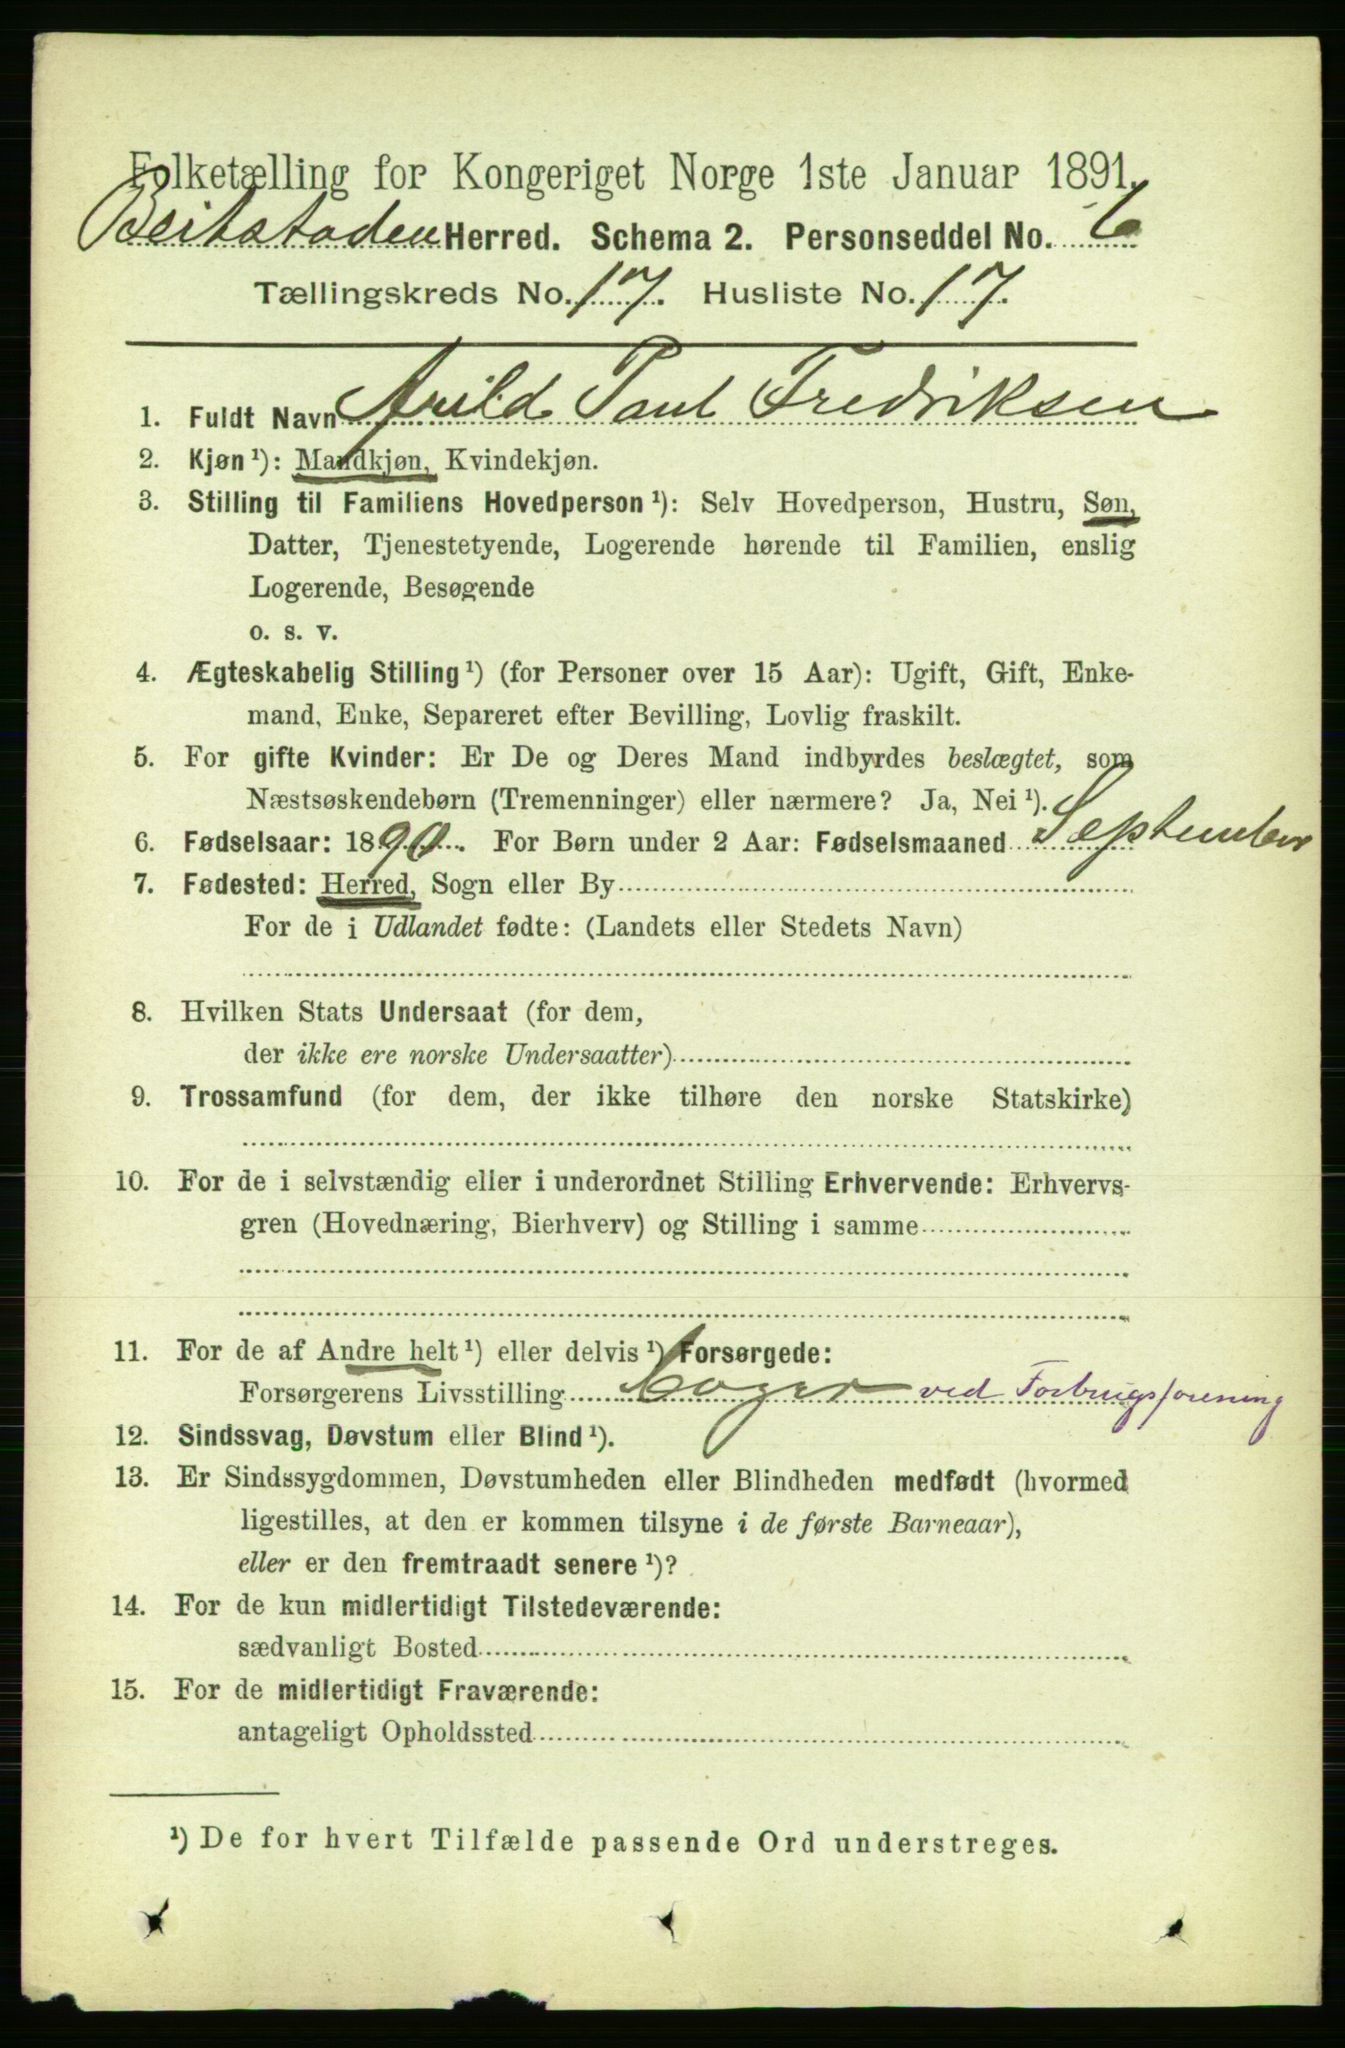 Folketælling for Kongeriget Norge 1ste Januar 1891.
Beitstaden Herred. Schema 2. Personseddel No. 6
Tællingskreds No. 17. Husliste No. 17.
1. Fuldt Navn Arild Paul Fredriksen
2. Kjøn ¹): Mandkjøn, Kvindekjøn.
3. Stilling til Familiens Hovedperson ¹): Selv Hovedperson, Hustru, Søn,
Datter, Tjenestetyende, Logerende hørende til Familien, enslig
Logerende, Besøgende
o. s. v.
4. Ægteskabelig Stilling ¹) (for Personer over 15 Aar): Ugift, Gift, Enke-
mand, Enke, Separeret efter Bevilling, Lovlig fraskilt.
5. For gifte Kvinder: Er De og Deres Mand indbyrdes beslægtet, som
Næstsøskendebørn (Tremenninger) eller nærmere? Ja, Nei ¹).
6. Fødselsaar: 1890. For Børn under 2 Aar: Fødselsmaaned September
7. Fødested: Herred, Sogn eller By
For de i Udlandet fødte: (Landets eller Stedets Navn)
8. Hvilken Stats Undersaat (for dem,
der ikke ere norske Undersaatter)
9. Trossamfund (for dem, der ikke tilhøre den norske Statskirke)
10. For de i selvstændig eller i underordnet Stilling Erhvervende: Erhvervs-
gren (Hovednæring, Bierhverv) og Stilling i samme
11. For de af Andre helt ¹) eller delvis ¹) Forsørgede:
Forsørgerens Livsstilling ved Forbrugsforening
12. Sindssvag, Døvstum eller Blind ¹).
13. Er Sindssygdommen, Døvstumheden eller Blindheden medfødt (hvormed
ligestilles, at den er kommen tilsyne i de første Barneaar),
eller er den fremtraadt senere ¹)?
14. For de kun midlertidigt Tilstedeværende:
sædvanligt Bosted
15. For de midlertidigt Fraværende:
antageligt Opholdssted
¹) De for hvert Tilfælde passende Ord understreges.